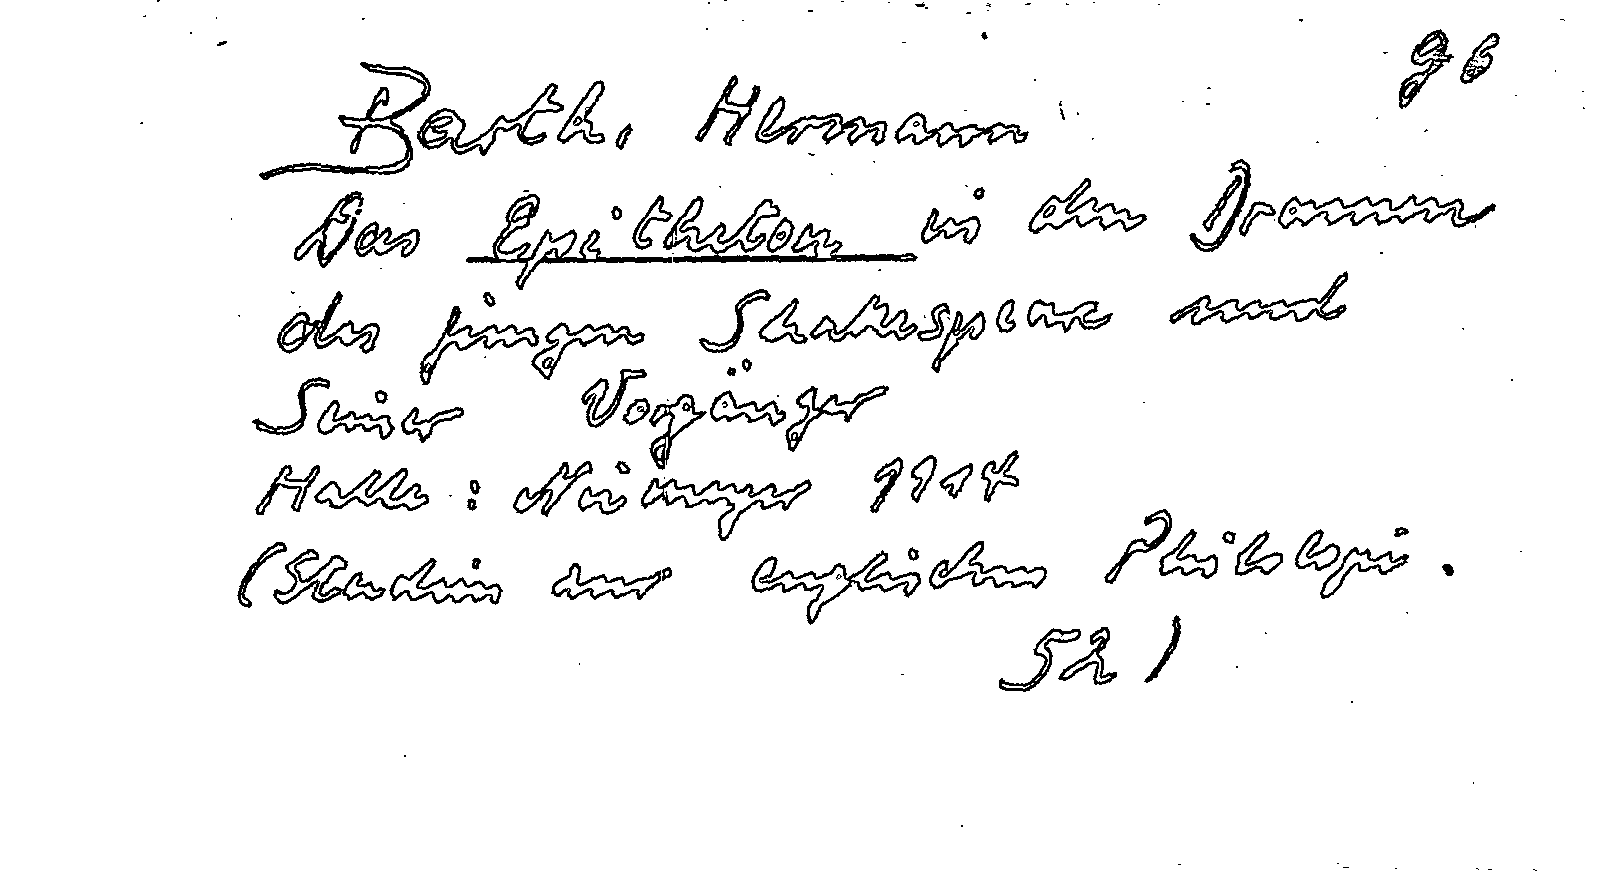 96
Barth, Hermann
Das Epitheton in den Dramen
des jungen Shakespeare und
Seiner Vorgänger
Halle: Niemeyer 1914
(Studien zur englischen Philologie.
52)